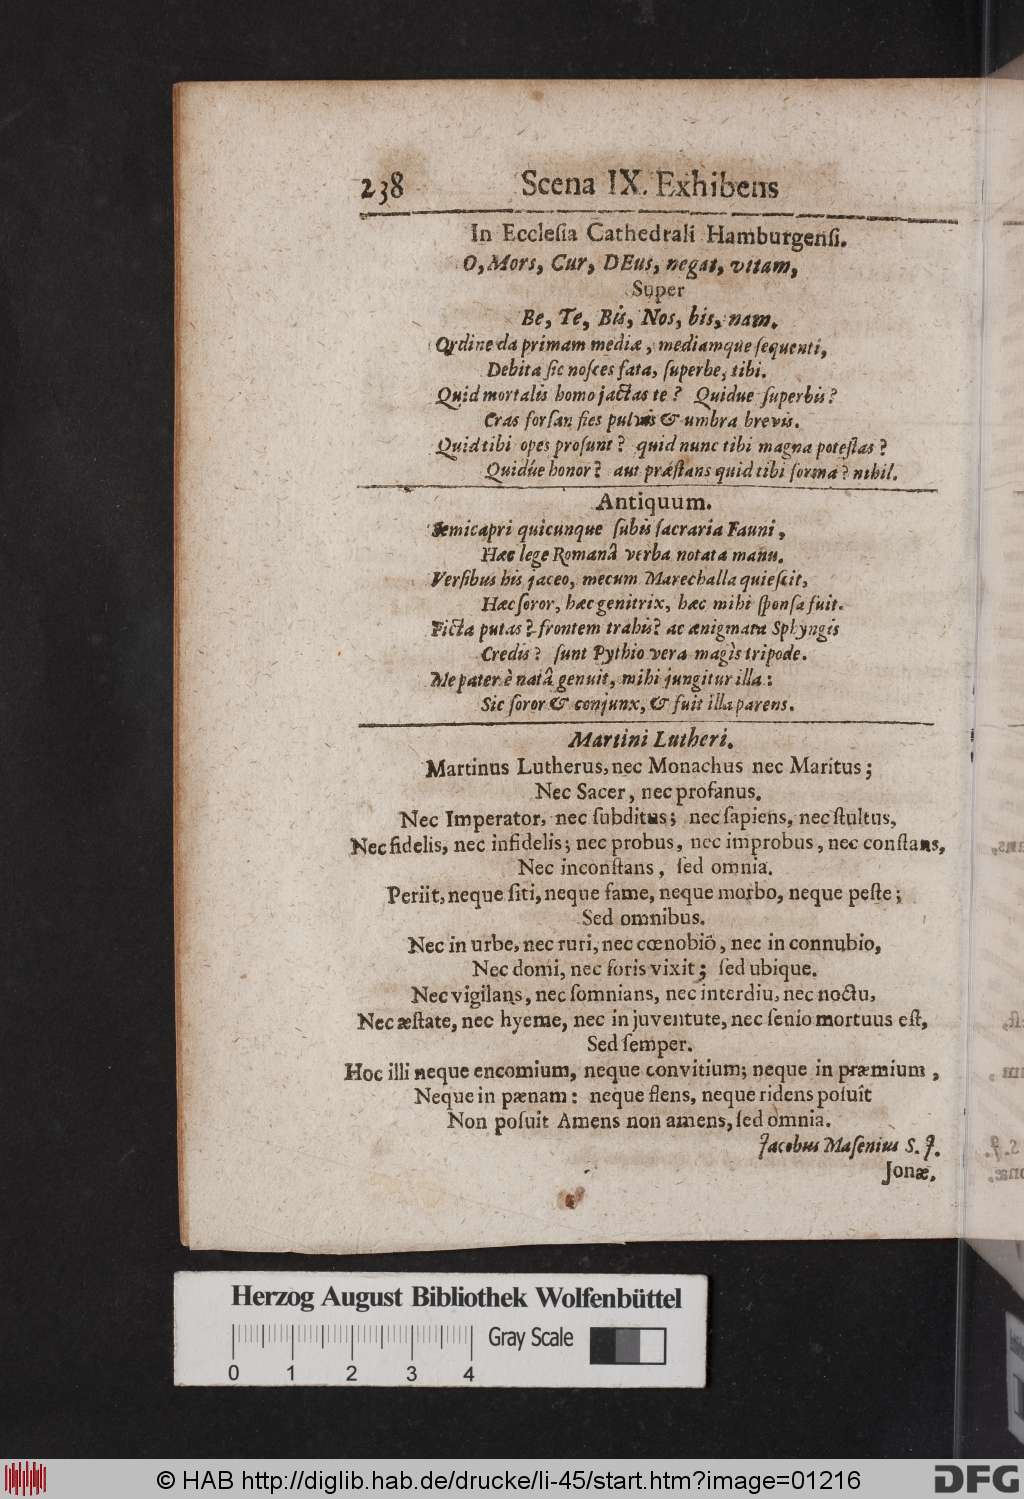 238 Scena IX. Exhibens
In Eccleſia Cathedrali Hamburgenſi.
O, Mors, Cur, DEus, negat, vitam,
Super
Be, Te, Bis, Nos, bis, nam.
Ordine da primam mediæ, mediamque ſequenti,
Debita ſic noſces fata, ſuperbe, tibi.
Quid mortalis homo jactas te? Quidue ſuperbis?
Cras forſan fies pulvis & umbra brevis.
Quid tibi opes proſunt? quid nunc tibi magna poteſtas?
Quidúe honor? aut præſtans quid tibi forma? nihil.
Antiquum.
Semicapri quicunque ſubis ſacraria Fauni,
Hæc lege Romanâ verba notata manu.
Verſibus his jaceo, mecum Marechalla quieſcit,
Hæc ſoror, hæc genitrix, hæc mihi ſponſa fuit.
Ficta putas? frontem trahis? ac ænigmata Sphyngis
Credis? ſunt Pythio vera magìs tripode.
Me pater è natâ genuit, mihi jungitur illa:
Sic ſoror & conjunx, & fuit illa parens.
Martini Lutheri.
Martinus Lutherus, nec Monachus nec Maritus;
Nec Sacer, nec profanus.
Nec Imperator, nec ſubditus; nec ſapiens, nec ſtultus,
Nec fidelis, nec infidelis; nec probus, nec improbus, nec conſtans,
Nec inconſtans, ſed omnia.
Periit, neque ſiti, neque fame, neque morbo, neque peſte;
Sed omnibus.
Nec in urbe, nec ruri, nec cœnobiô, nec in connubio,
Nec domi, nec foris vixit; ſed ubique.
Nec vigilans, nec ſomnians, nec interdiu, nec noctu,
Nec æſtate, nec hyeme, nec in juventute, nec ſenio mortuus eſt,
Sed ſemper.
Hoc illi neque encomium, neque convitium; neque in præmium,
Neque in pænam: neque flens, neque ridens poſuît
Non poſuit Amens non amens, ſed omnia.
Jacobus Maſenius S. J.
Jonæ,
Herzog August Bibliothek Wolfenbüttel
Gray Scale
0 1 2 3 4
© HAB http://diglib.hab.de/drucke/li-45/start.htm?image=01216
DFG